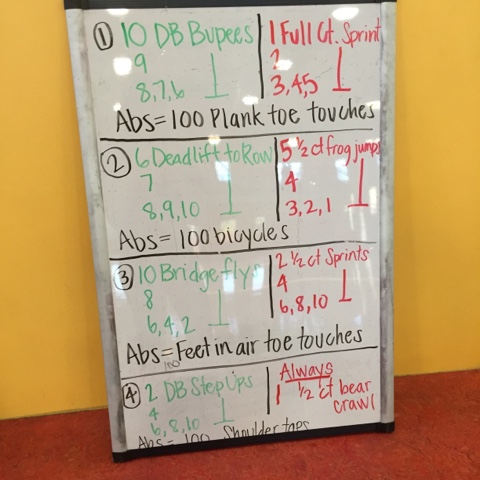 1 10 DB Bupees 1 Full Ct. Sprint
9 2
8,7,6 3,4,5
Abs = 100 Plank toe touches
2 6 Deadlift to Row 5 1/2 ct frog jumps
7 4
8,9,10 3,2,1
Abs = 100 bicycles
3 10 Bridge flys 2 1/2 ct Sprints
8 4
6,4,2 6,8,10
Abs = Feet in air toe touches
100
4 2 DB Step Ups Always
4 1 1/2 ct bear
6,8,10 crawl
Abs = 100 Shoulder taps